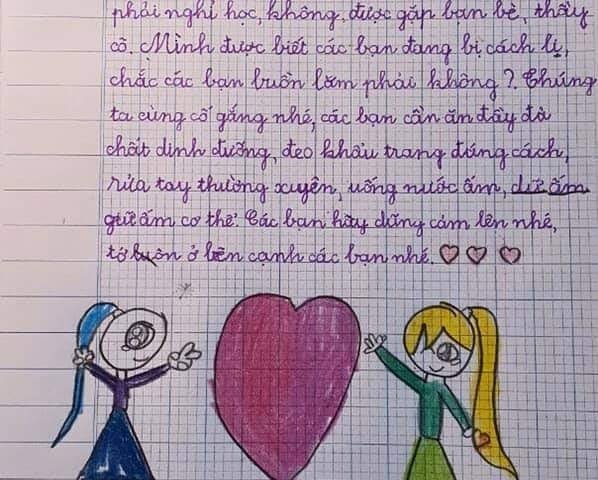 phải nghỉ học, không được gặp bạn bè, thầy
cô. Mình được biết các bạn đang bị cách li,
chắc các bạn buồn lắm phải không? Chúng
ta cùng cố gắng nhé, các bạn cần ăn đầy đủ
chất dinh dưỡng, đeo khẩu trang đúng cách,
rửa tay thường xuyên, uống nước ấm,
giữ ấm cơ thể. Các bạn hãy dũng cảm lên nhé,
tớ luôn ở bên cạnh các bạn nhé.